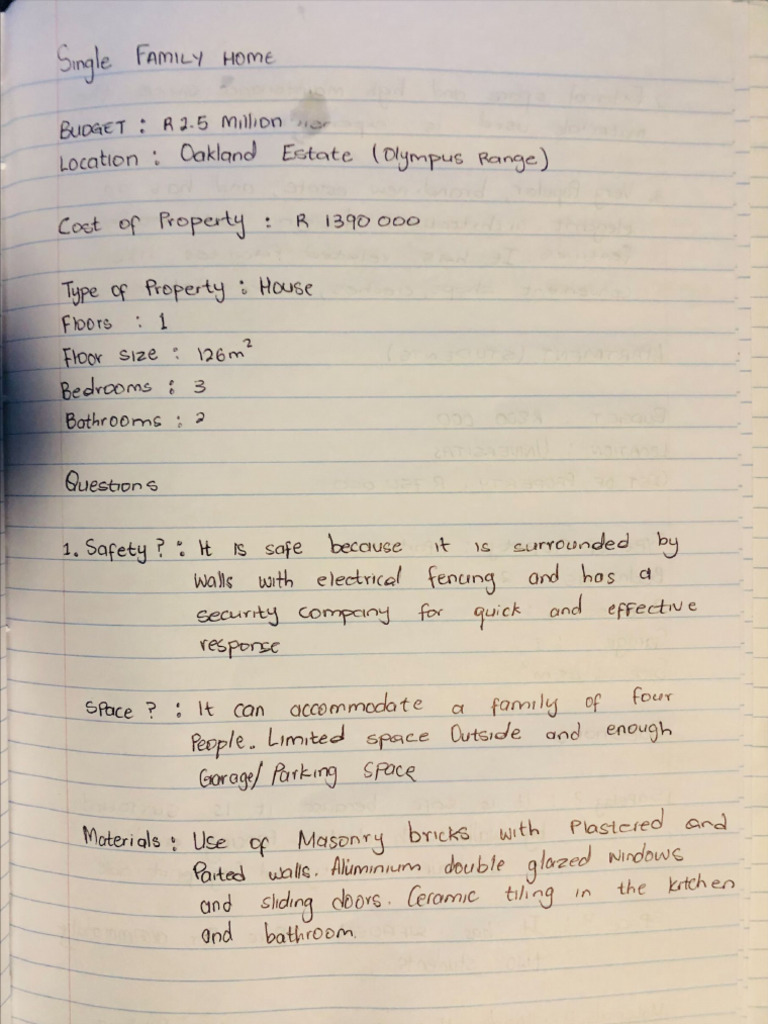 Single FAMILY HOME
BUDGET : R2.5 Million
Location : Oakland Estate (Olympus Range)
Cost of Property : R 1390 000
Type of Property : House
Floors : 1
Floor size : 126m²
Bedrooms : 3
Bathrooms : 2
Questions
1. Safety ? : It is safe because it is surrounded by
walls with electrical fencing and has a
security company for quick and effective
response
Space ? : It can accommodate a family of four
People. Limited space Outside and enough
Garage/ Parking Space
Materials : Use of Masonry bricks with Plastered and
Paited walls. Aluminium double glazed windows
and sliding doors. Ceramic tiling in the kitchen
and bathroom.